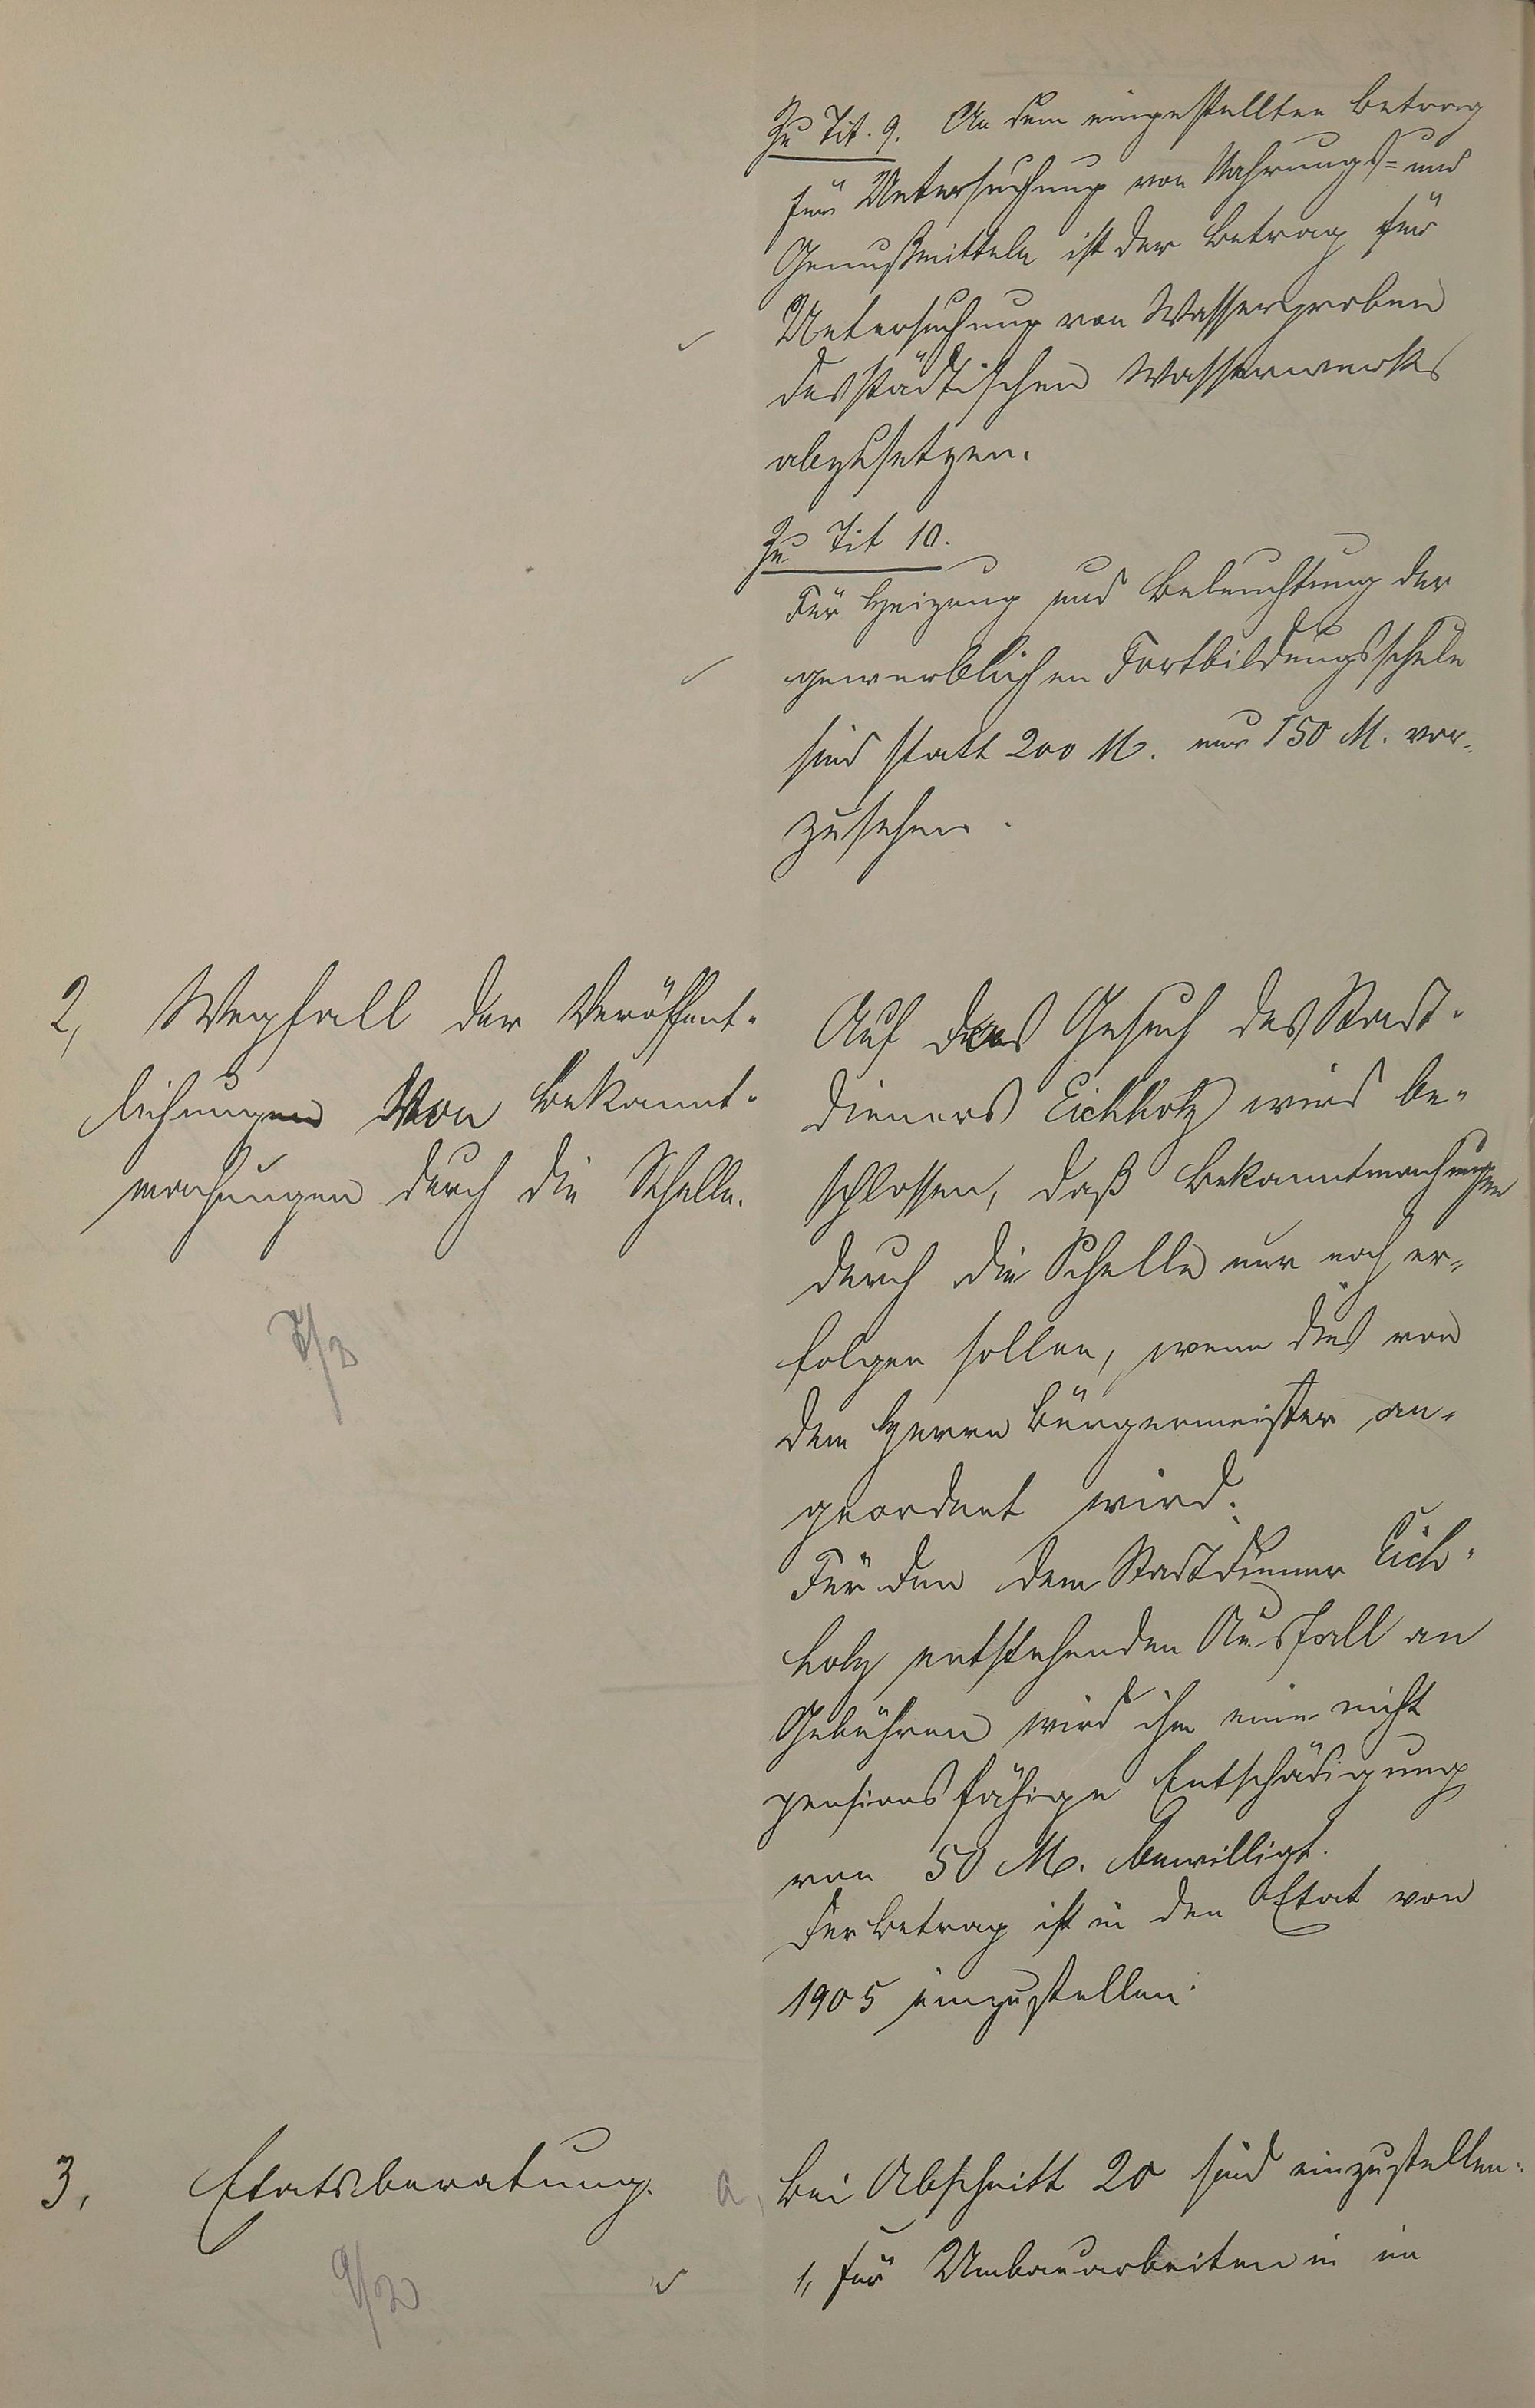 Zu Tit. 9. An dem eingestellten Betrag
für Untersuchung von Nahrungs= und
Genußmitteln ist der Betrag für
Untersuchung von Wasserproben
des städtischen Wasserwerks
abzusetzen.
Zu Tit 10.
Für Heizung und Beleuchtung der
gewerblichen Fortbildungsschule
sind statt 200 M. nur 150 M. vor-
zusehen.
2, Wegfall der Veröffent-
lichungen von Bekannt-
machungen durch die Schelle.
Auf das Gesuch des Stadt-
dieners Eichholz wird be-
schlossen, daß Bekanntmachungen
durch die Schelle nur noch er-
folgen sollen, wenn dies von
dem Herrn Bürgermeister an-
geordnet wird.
Für den dem Stadtdiener Eich-
holz entstehenden Ausfall an
Gebühren wird ihm eine nicht
pensionsfähige Entschädigung
von 50 M. bewilligt.
Der Betrag ist in den Etat von
1905 einzustellen.
3, Etatsberatung.
a, Bei Abschnitt 20 sind einzustellen:
1, für Umbauarbeiten in im